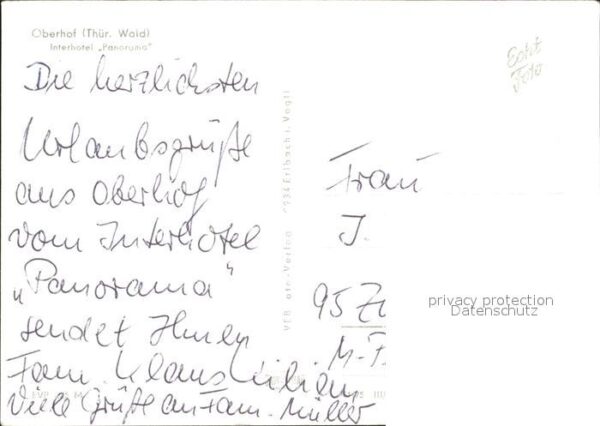 Oberhof (Thür. Wald)
Interhotel „Panorama“
Die herzlichsten
Urlaubsgrüße
aus Oberhof
vom Interhotel
„Panorama“
sendet Ihnen
Fam. Klaus
Viele Grüße an Fam. Müller
Echt
Foto
9934 Erlbach i. Vogtl
Frau
J.
95 Z
M-
privacy protection
Datenschutz